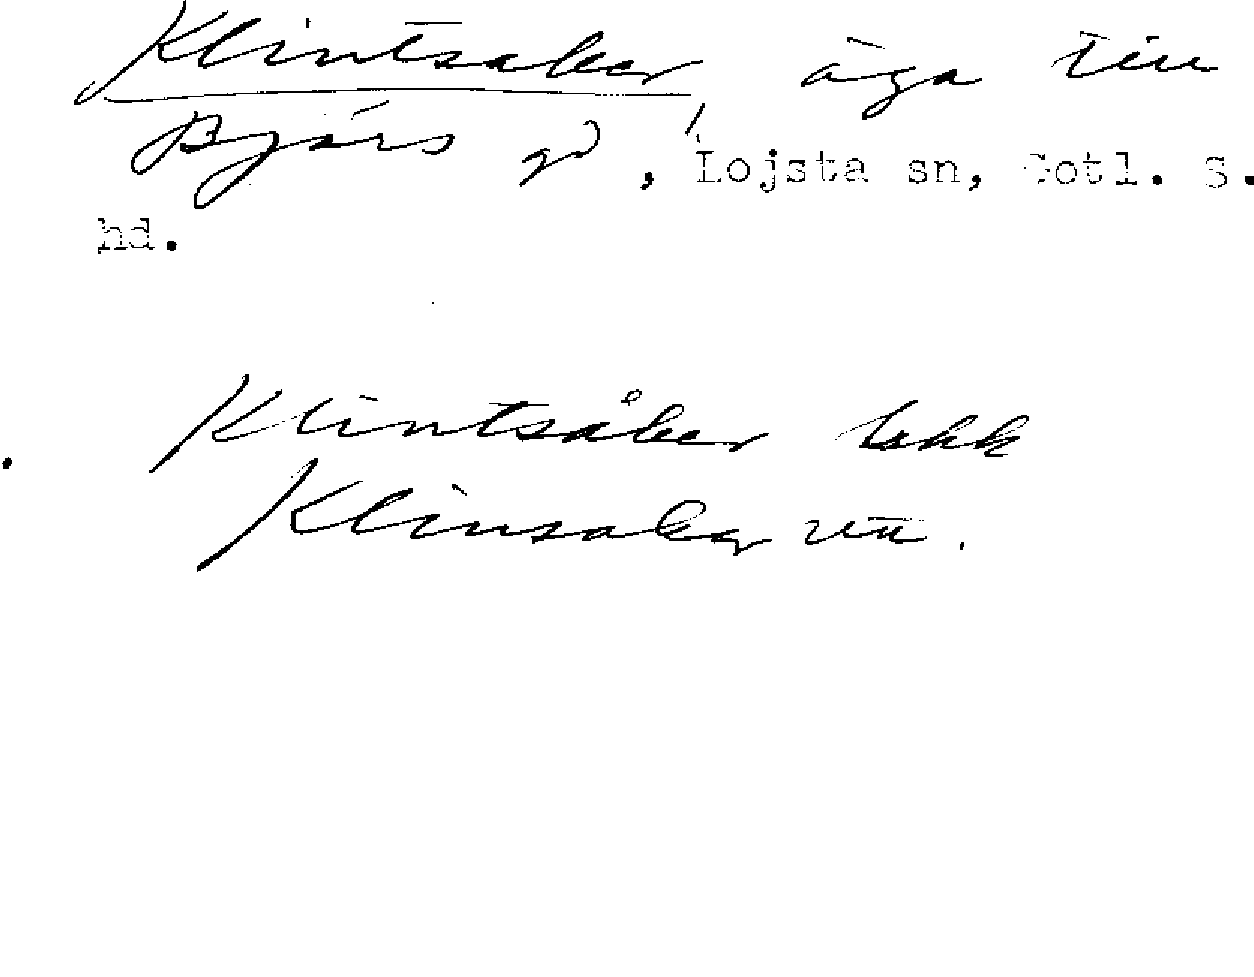 Klintsaker, äga till
Bjärs gd, Lojsta sn, Gotl. S.
hd.
Klintsåker lekk
Klinsaker utt.